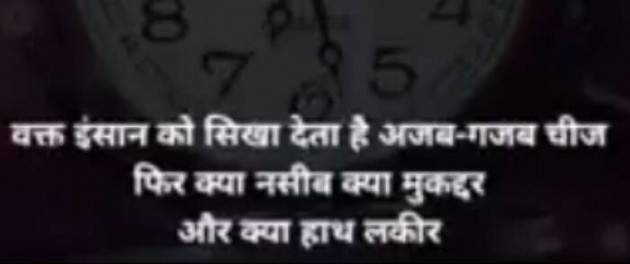 8 4
7 5
6
वक्त इंसान को सिखा देता है अजब-गजब चीज
फिर क्या नसीब क्या मुकद्दर
और क्या हाथ लकीर